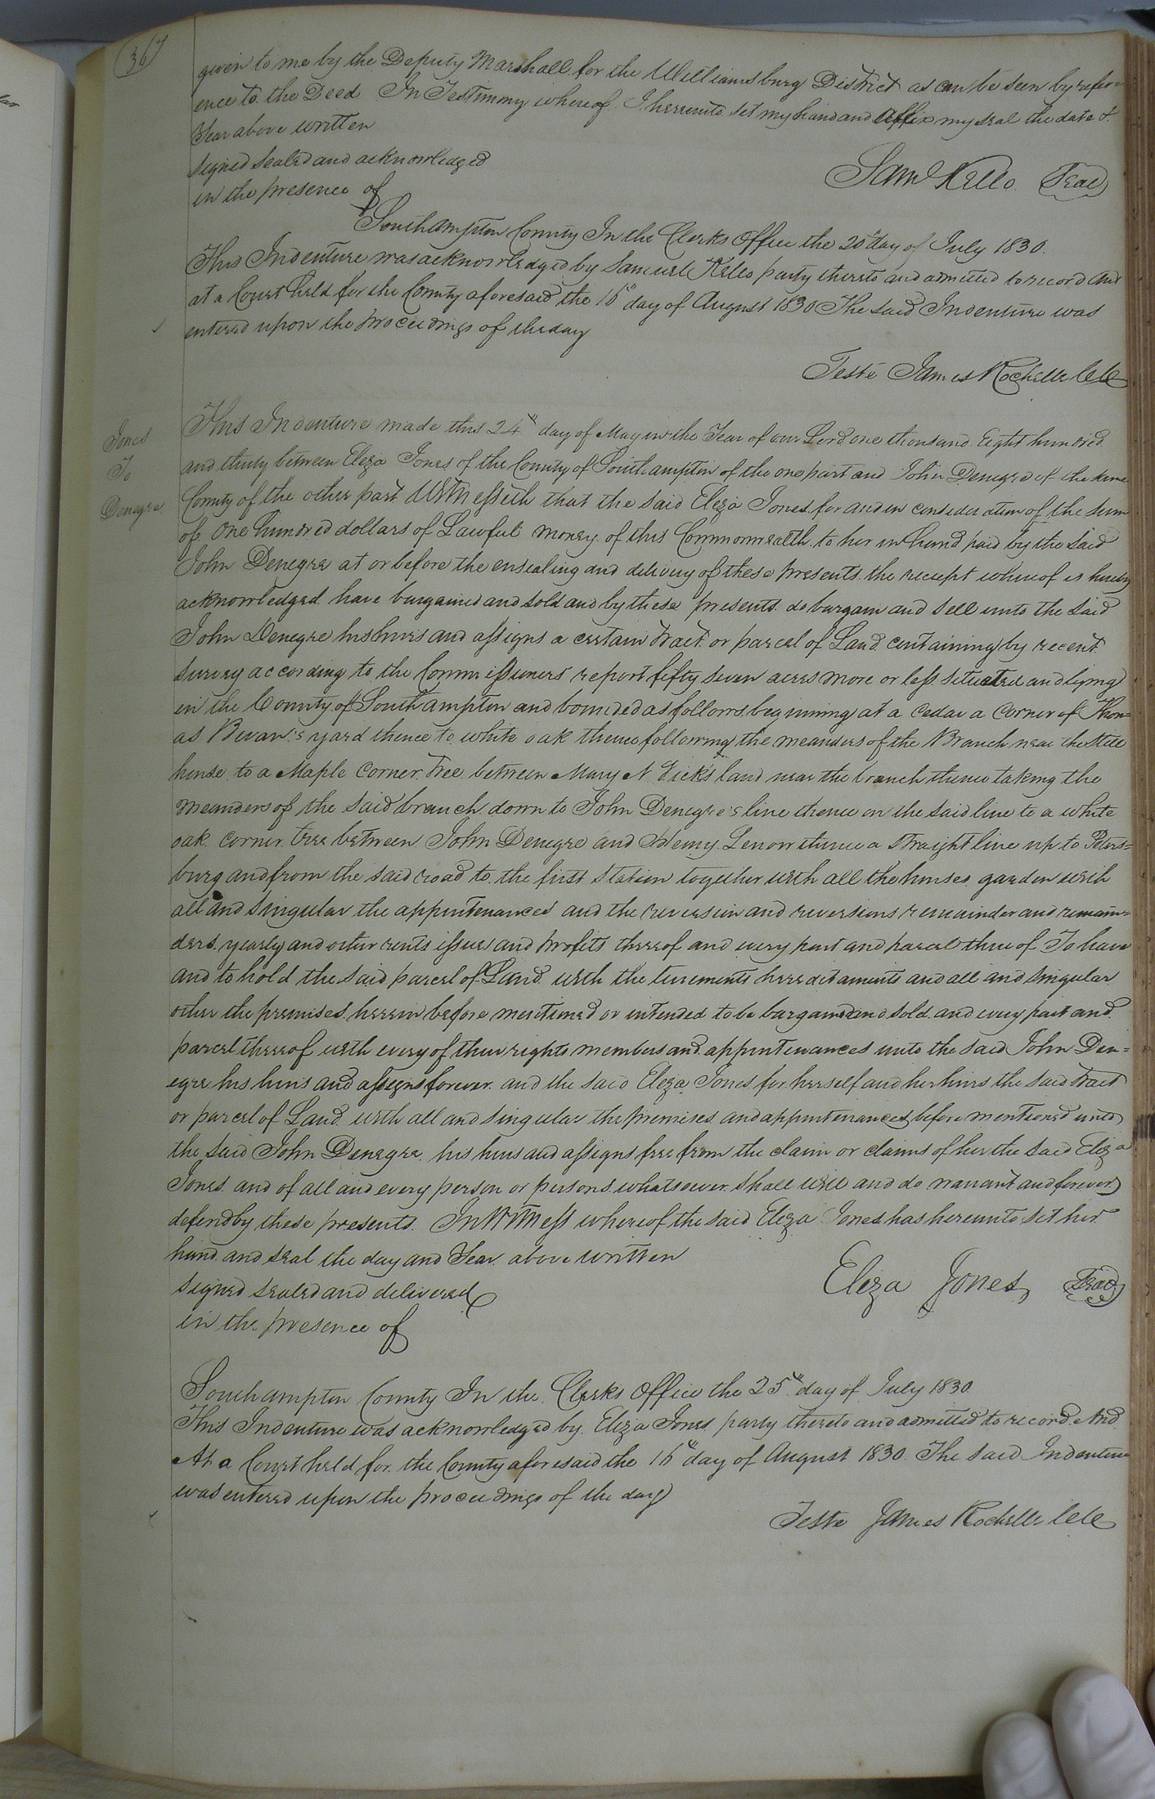 367
given to me by the Deputy Marshall for the Williamsburg District as can be seen by refer=
ence to the Deed In Testimony whereof I hereunto set my hand and affix my seal the date &
Year above written
Signed Sealed and acknowledged
in the presence of
Saml Kello Seal
Southampton County In the Clerks Office the 20th day of July 1830.
This Indenture was acknowledged by Samuel Kello party thereto and admitted to record And
at a Court held for the County aforesaid the 16th day of August 1830 The said Indenture was
entered upon the proceedings of the day
Teste James Rochelle Clk
Jones
To
Denegre
This Indenture made this 24th day of May in the Year of our Lord one thousand Eight hundred
and thirty between Eliza Jones of the County of Southampton of the one part and John Denegre of the same
County of the other part Witnesseth that the said Eliza Jones for and in consideration of the sum
of One hundred dollars of Lawful money of this Commonwealth to her in hand paid by the said
John Denegre at or before the ensealing and delivery of these presents the reciept whereof is hereby
acknowledged have bargained and sold and by these presents do bargain and sell unto the said
John Denegre his heirs and assigns a certain Tract or parcel of Land containing by recent
survey according to the Commissioners report fifty seven acres more or less situated and lying
in the County of Southampton and bounded as follows beginning at a cedar a corner of Thom=
as Bevan's yard thence to white oak thence following the meanders of the Branch near the Still
house to a Maple Corner Tree between Mary N Vick's land near the branch thence taking the
meanders of the said branch down to John Denegre's line thence on the said line to a white
oak corner tree between John Denegre and Henry Lenow thence a straight line up to Peters=
burg and from the said road to the first station together with all the houses garden with
all and singular the appurtenances and the reversion and reversions remainder and remain=
ders, yearly and other rents issues and profits thereof and every part and parcel thereof To have
and to hold the said parcel of Land with the tenements hereditaments and all and singular
other the premises herein before mentioned or intended to be bargained and sold and every part and
parcel thereof with every of their rights members and appurtenances unto the said John Den=
egre his heirs and assigns forever and the said Eliza Jones for herself and her heirs the said tract
or parcel of Land with all and singular the premises and appurtenances before mentioned unto
the said John Denegre his heirs and assigns free from the claim or claims of her the said Eliza
Jones and of all and every person or persons whatsoever shall will and do warrant and forever
defend by these presents. In Witness whereof the said Eliza Jones has hereunto set her
hand and seal the day and Year above written
Signed sealed and delivered
in the presence of
Eliza Jones Seal
Southampton County In the Clerks Office the 25th day of July 1830
This Indenture was acknowledged by Eliza Jones party thereto and admitted to record And
At a Court held for the County aforesaid the 16th day of August 1830 The said Indenture
was entered upon the proceedings of the day
Teste James Rochelle Clk